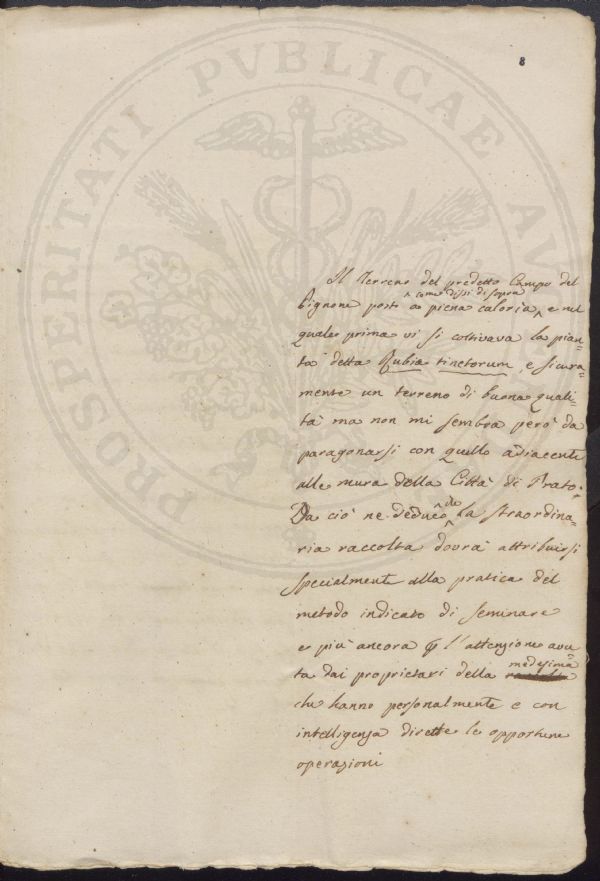 8
PROSPERITATI PVBLICAE AVGENDAE
Il Terreno del predetto Campo del
come dissi di sopra
Pignone posto a piena caloria, e nel
quale prima vi si coltivava la pian=
ta detta Rubia tinctorum, e sicura=
mente un terreno di buona quali=
tà ma non mi sembra però da
paragonarsi con quello adiacente
alle mura della Città di Prato.
Da ciò ne deduco che la straordina=
ria raccolta dovrà attribuirsi
specialmente alla pratica del
metodo indicato di seminare
e più ancora p l'attenzione avu
ta dai proprietari della medesima
che hanno personalmente e con
intelligenza dirette le opportune
operazioni